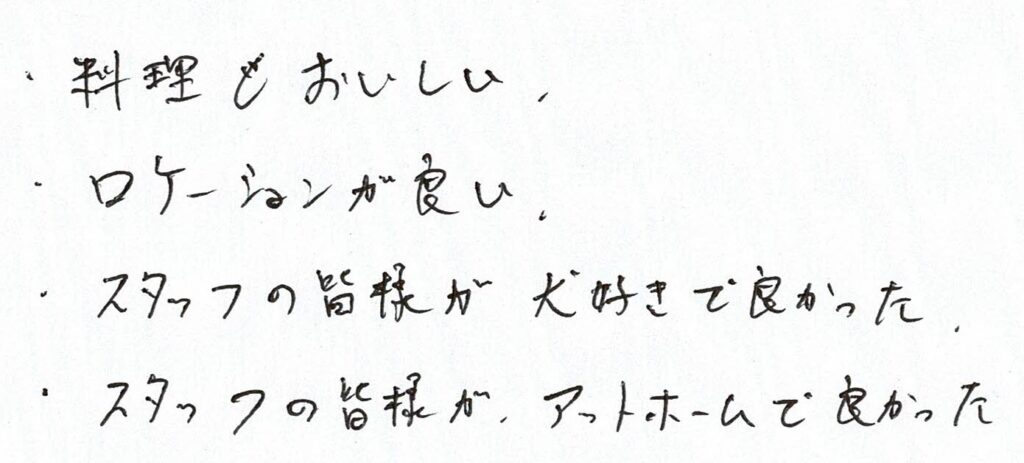 ・料理もおいしい。
・ロケーションが良い。
・スタッフの皆様が犬好きで良かった。
・スタッフの皆様が、アットホームで良かった